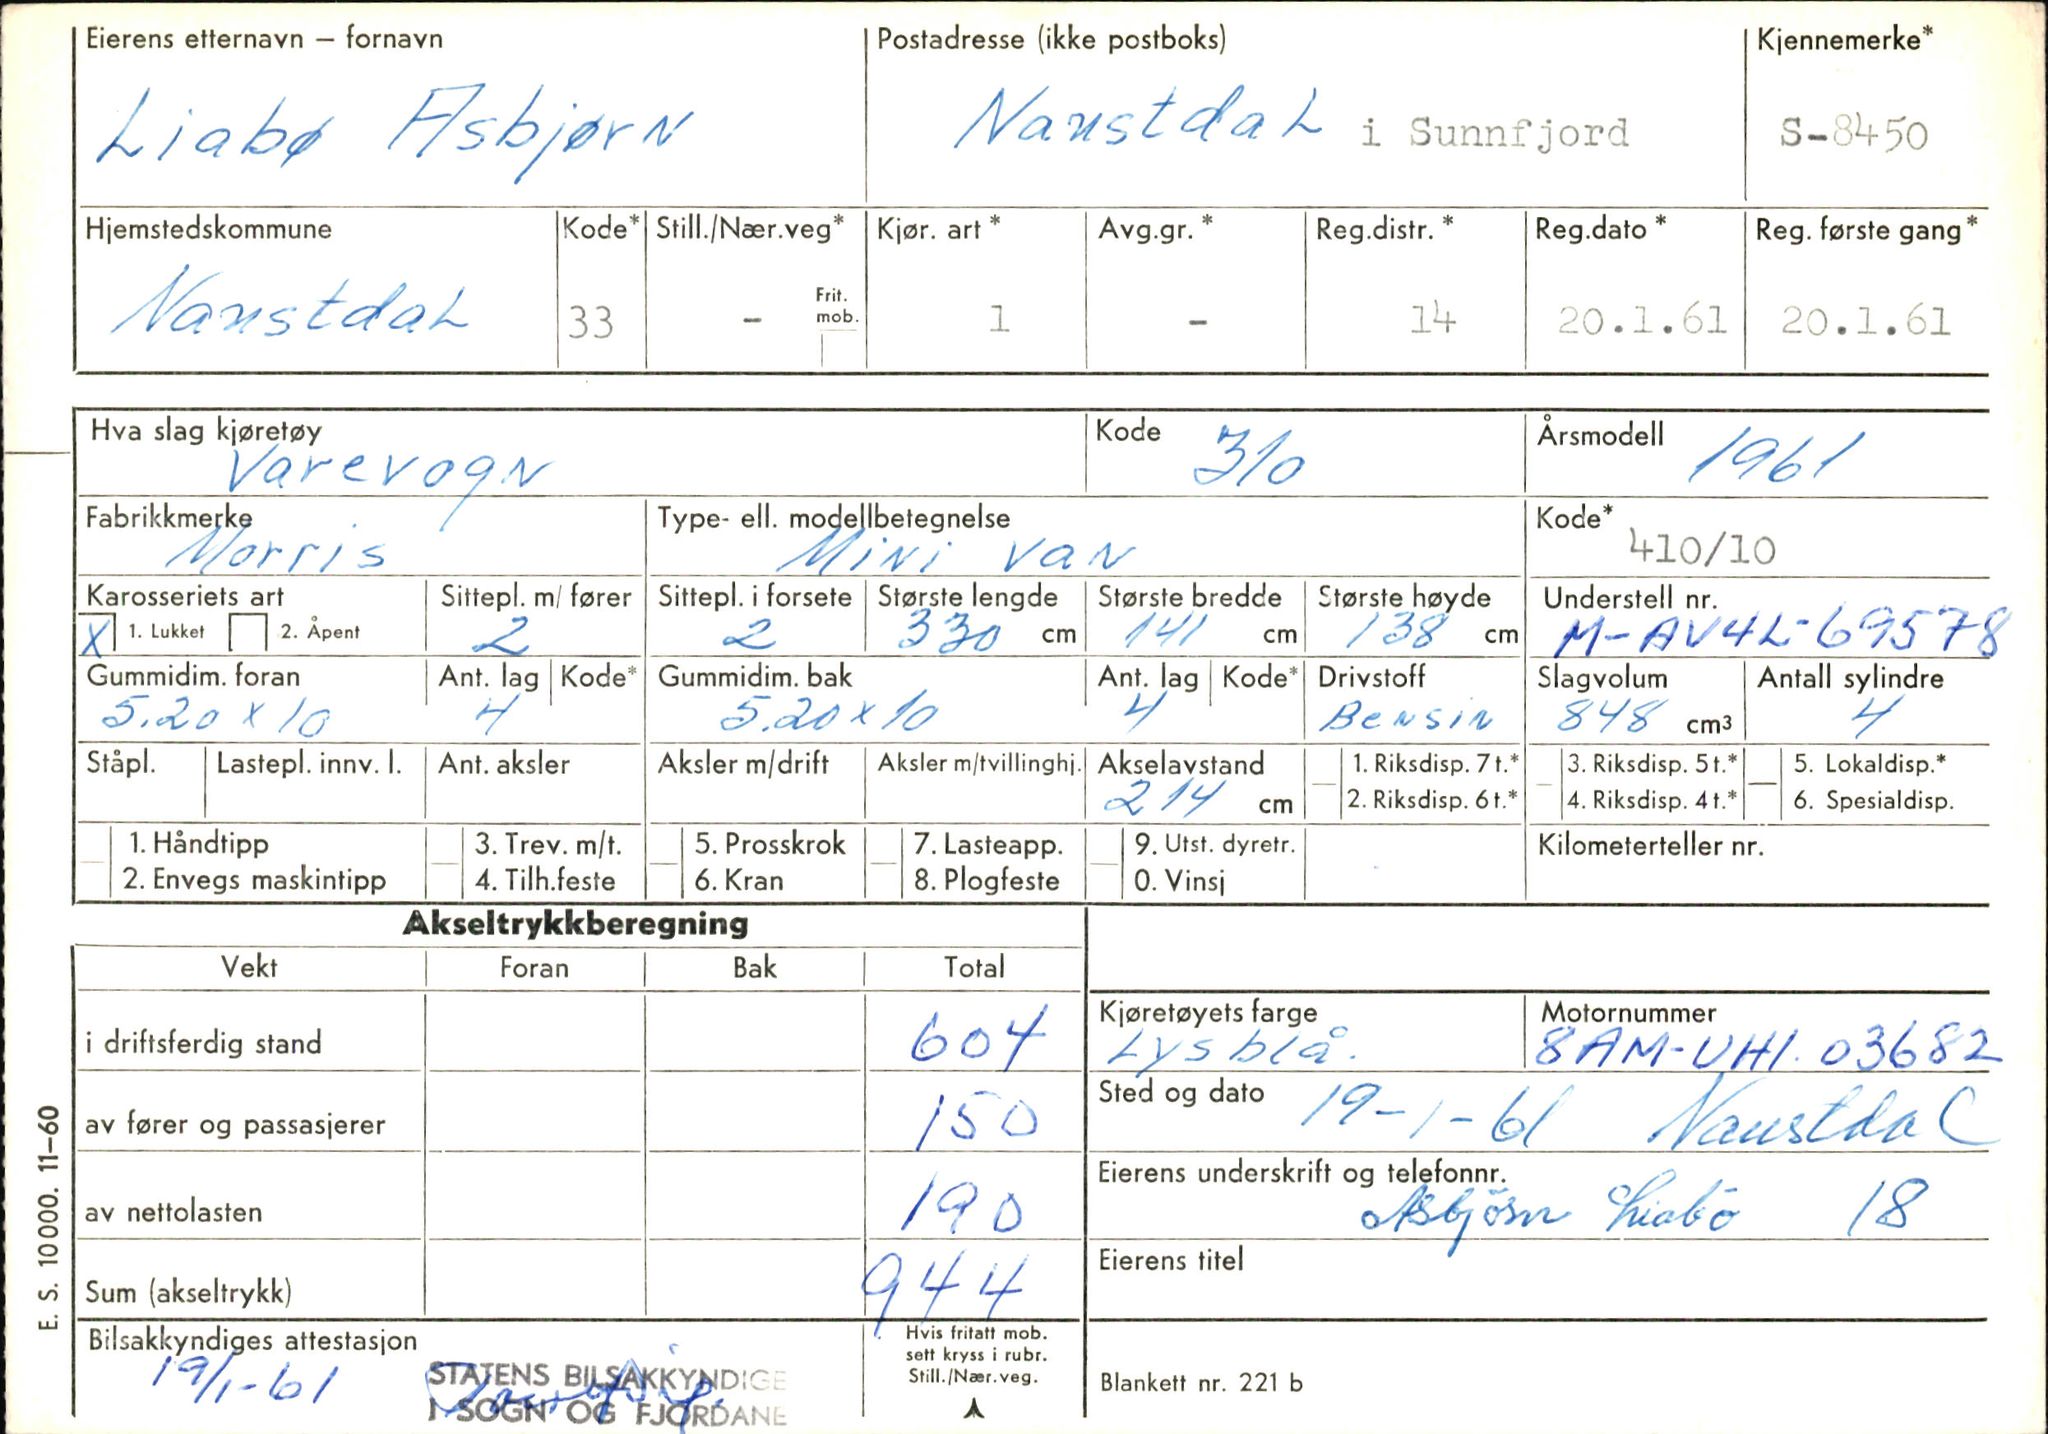 Eierens etternavn – fornavn Postadresse (ikke postboks) Kjennemerke*
Liabø Asbjørn Naustdal i Sunnfjord S-8450
Hjemstedskommune Kode* Still./Nær.veg* Kjør. art * Avg.gr. * Reg.distr. * Reg.dato * Reg. første gang*
Frit.
Naustdal 33 - mob. 1 - 14 20.1.61 20.1.61
Hva slag kjøretøy Kode Årsmodell
Varevogn 310 1961
Fabrikkmerke Type- ell. modellbetegnelse Kode*
Morris Mini Van 410/10
Karosseriets art Sittepl. m/ fører Sittepl. i forsete Største lengde Største bredde Største høyde Understell nr.
X 1. Lukket 2. Åpent 2 2 330 cm 141 cm 138 cm M-AV4L-69578
Gummidim. foran Ant. lag Kode* Gummidim. bak Ant. lag Kode* Drivstoff Slagvolum Antall sylindre
5.20 x 10 4 5.20 x 10 4 Bensin 848 cm3 4
Ståpl. Lastepl. innv. l. Ant. aksler Aksler m/drift Aksler m/tvillinghj. Akselavstand 1. Riksdisp. 7 t.* 3. Riksdisp. 5 t.* 5. Lokaldisp.*
214 cm 2. Riksdisp. 6 t.* 4. Riksdisp. 4 t.* 6. Spesialdisp.
1. Håndtipp 3. Trev. m/t. 5. Prosskrok 7. Lasteapp. 9. Utst. dyretr. Kilometerteller nr.
2. Envegs maskintipp 4. Tilh.feste 6. Kran 8. Plogfeste 0. Vinsj
Akseltrykkberegning
Vekt Foran Bak Total
Kjøretøyets farge Motornummer
i driftsferdig stand 604 Lysblå. 8AM-UHI.03682
Sted og dato 19-1-61 Naustdal
av fører og passasjerer 150
Eierens underskrift og telefonnr.
av nettolasten 190 Asbjörn Liabö 18
Eierens titel
Sum (akseltrykk) 944
Bilsakkyndiges attestasjon
19/1-61
STATENS BILSAKKYNDIGE
I SOGN OG FJORDANE
Hvis fritatt mob.
sett kryss i rubr.
Still./Nær.veg.
Blankett nr. 221 b
E. S. 10000. 11–60